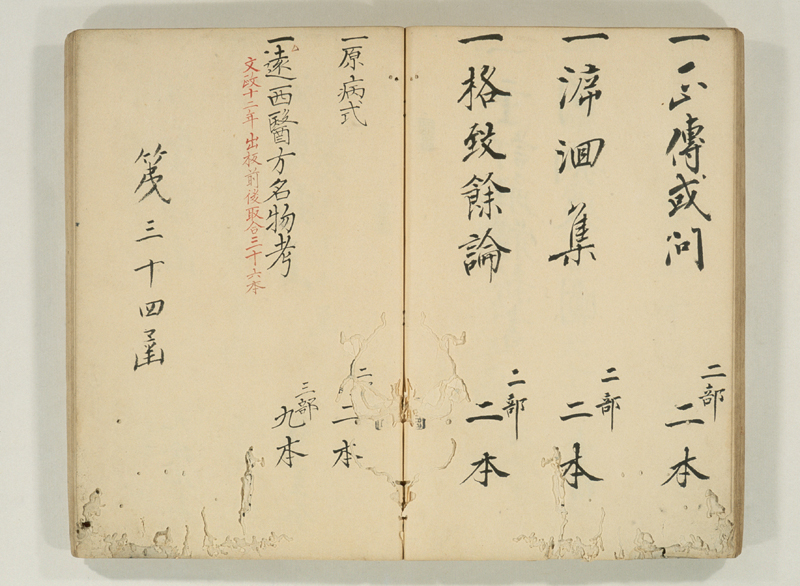 一 正傳或問 二部 二本
一 泝洄集 二部 二本
一 格致餘論 二部 二本
一 原病式 二 二本
一 遠西醫方名物考 三部 九本
文政十二年出板前後取合三十六本
第三十四凾